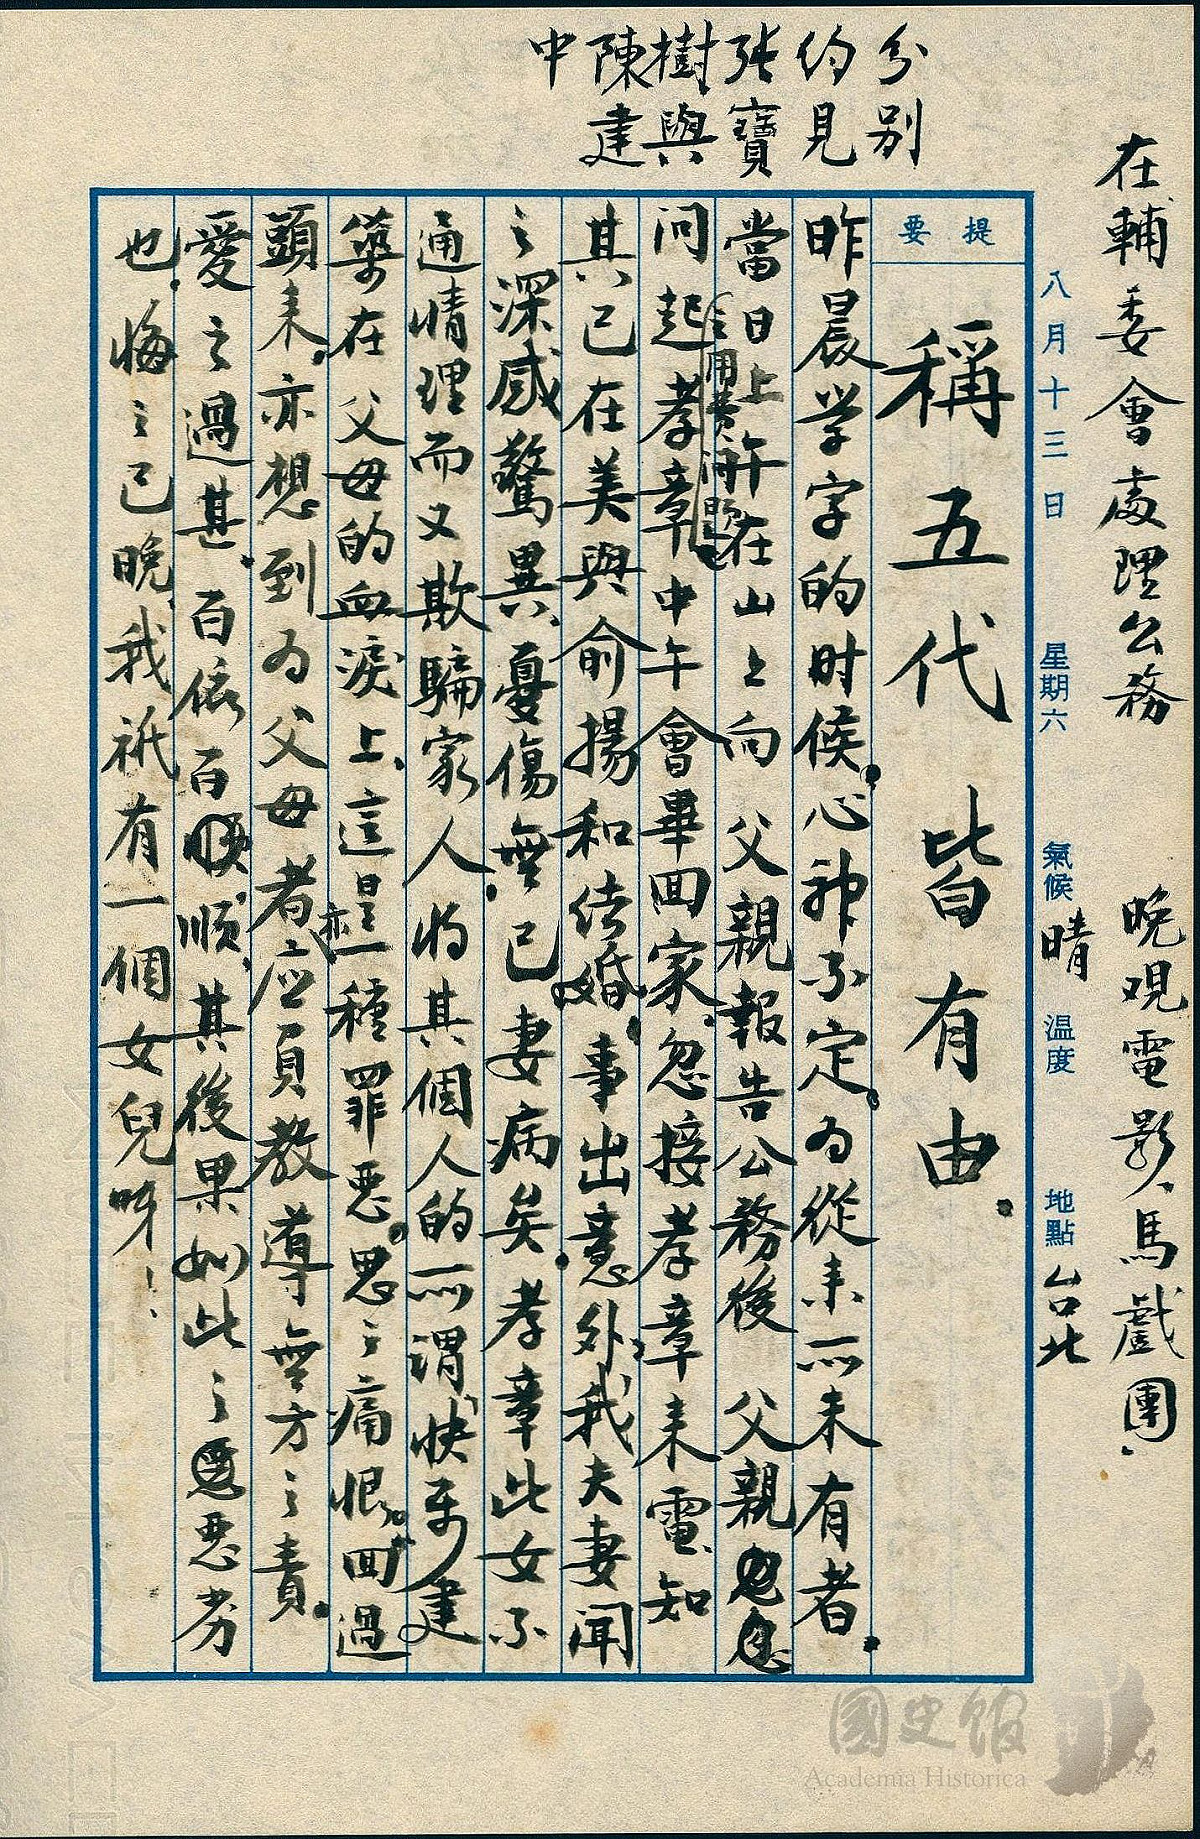 在輔委會處理公務　晚觀電影、馬戲團.
八月十三日　星期六　氣候 晴　温度　地點 台北
分別
約見
張寶
樹與
陳建
中
提要
稱五代皆有由.
昨晨学字的时候.心神不定.為從来所未有者.
當日上午在山上向 父親報告公務後 父親忽
用費問題
問起孝章中午會畢回家忽接孝章来電、知
其已在美與俞揚和結婚.事出意外、我夫妻聞
之深感驚異、憂傷無已.妻病矣.孝章此女不
通情理而又欺騙家人將其個人的所謂快樂建
築在父母的血淚上、這亦是一種罪惡.思之痛恨.回過
頭来.亦想到為父母者应負教導無方之責.
愛之過甚.百依百順、其後果如此之惡劣
也.悔之已晚、我祇有一個女兒呀！
國史館
Academia Historica